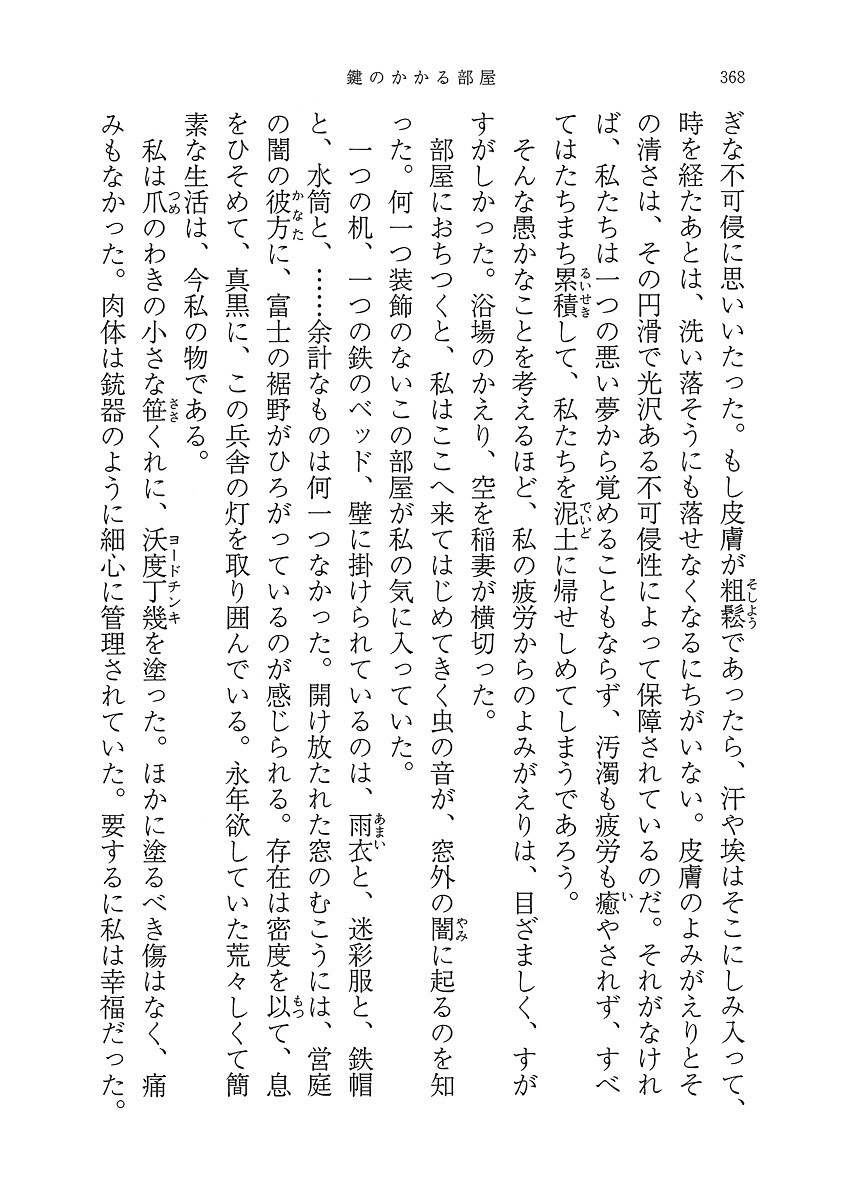 鍵のかかる部屋
368
ぎな不可侵に思いいたった。もし皮膚が粗鬆であったら、汗や埃はそこにしみ入って、
時を経たあとは、洗い落そうにも落せなくなるにちがいない。皮膚のよみがえりとそ
の清さは、その円滑で光沢ある不可侵性によって保障されているのだ。それがなけれ
ば、私たちは一つの悪い夢から覚めることもならず、汚濁も疲労も癒やされず、すべ
てはたちまち累積して、私たちを泥土に帰せしめてしまうであろう。
そんな愚かなことを考えるほど、私の疲労からのよみがえりは、目ざましく、すが
すがしかった。浴場のかえり、空を稲妻が横切った。
部屋におちつくと、私はここへ来てはじめてきく虫の音が、窓外の闇に起るのを知
った。何一つ装飾のないこの部屋が私の気に入っていた。
一つの机、一つの鉄のベッド、壁に掛けられているのは、雨衣と、迷彩服と、鉄帽
と、水筒と、……余計なものは何一つなかった。開け放たれた窓のむこうには、営庭
の闇の彼方に、富士の裾野がひろがっているのが感じられる。存在は密度を以て、息
をひそめて、真黒に、この兵舎の灯を取り囲んでいる。永年欲していた荒々しくて簡
素な生活は、今私の物である。
私は爪のわきの小さな笹くれに、沃度丁幾を塗った。ほかに塗るべき傷はなく、痛
みもなかった。肉体は銃器のように細心に管理されていた。要するに私は幸福だった。